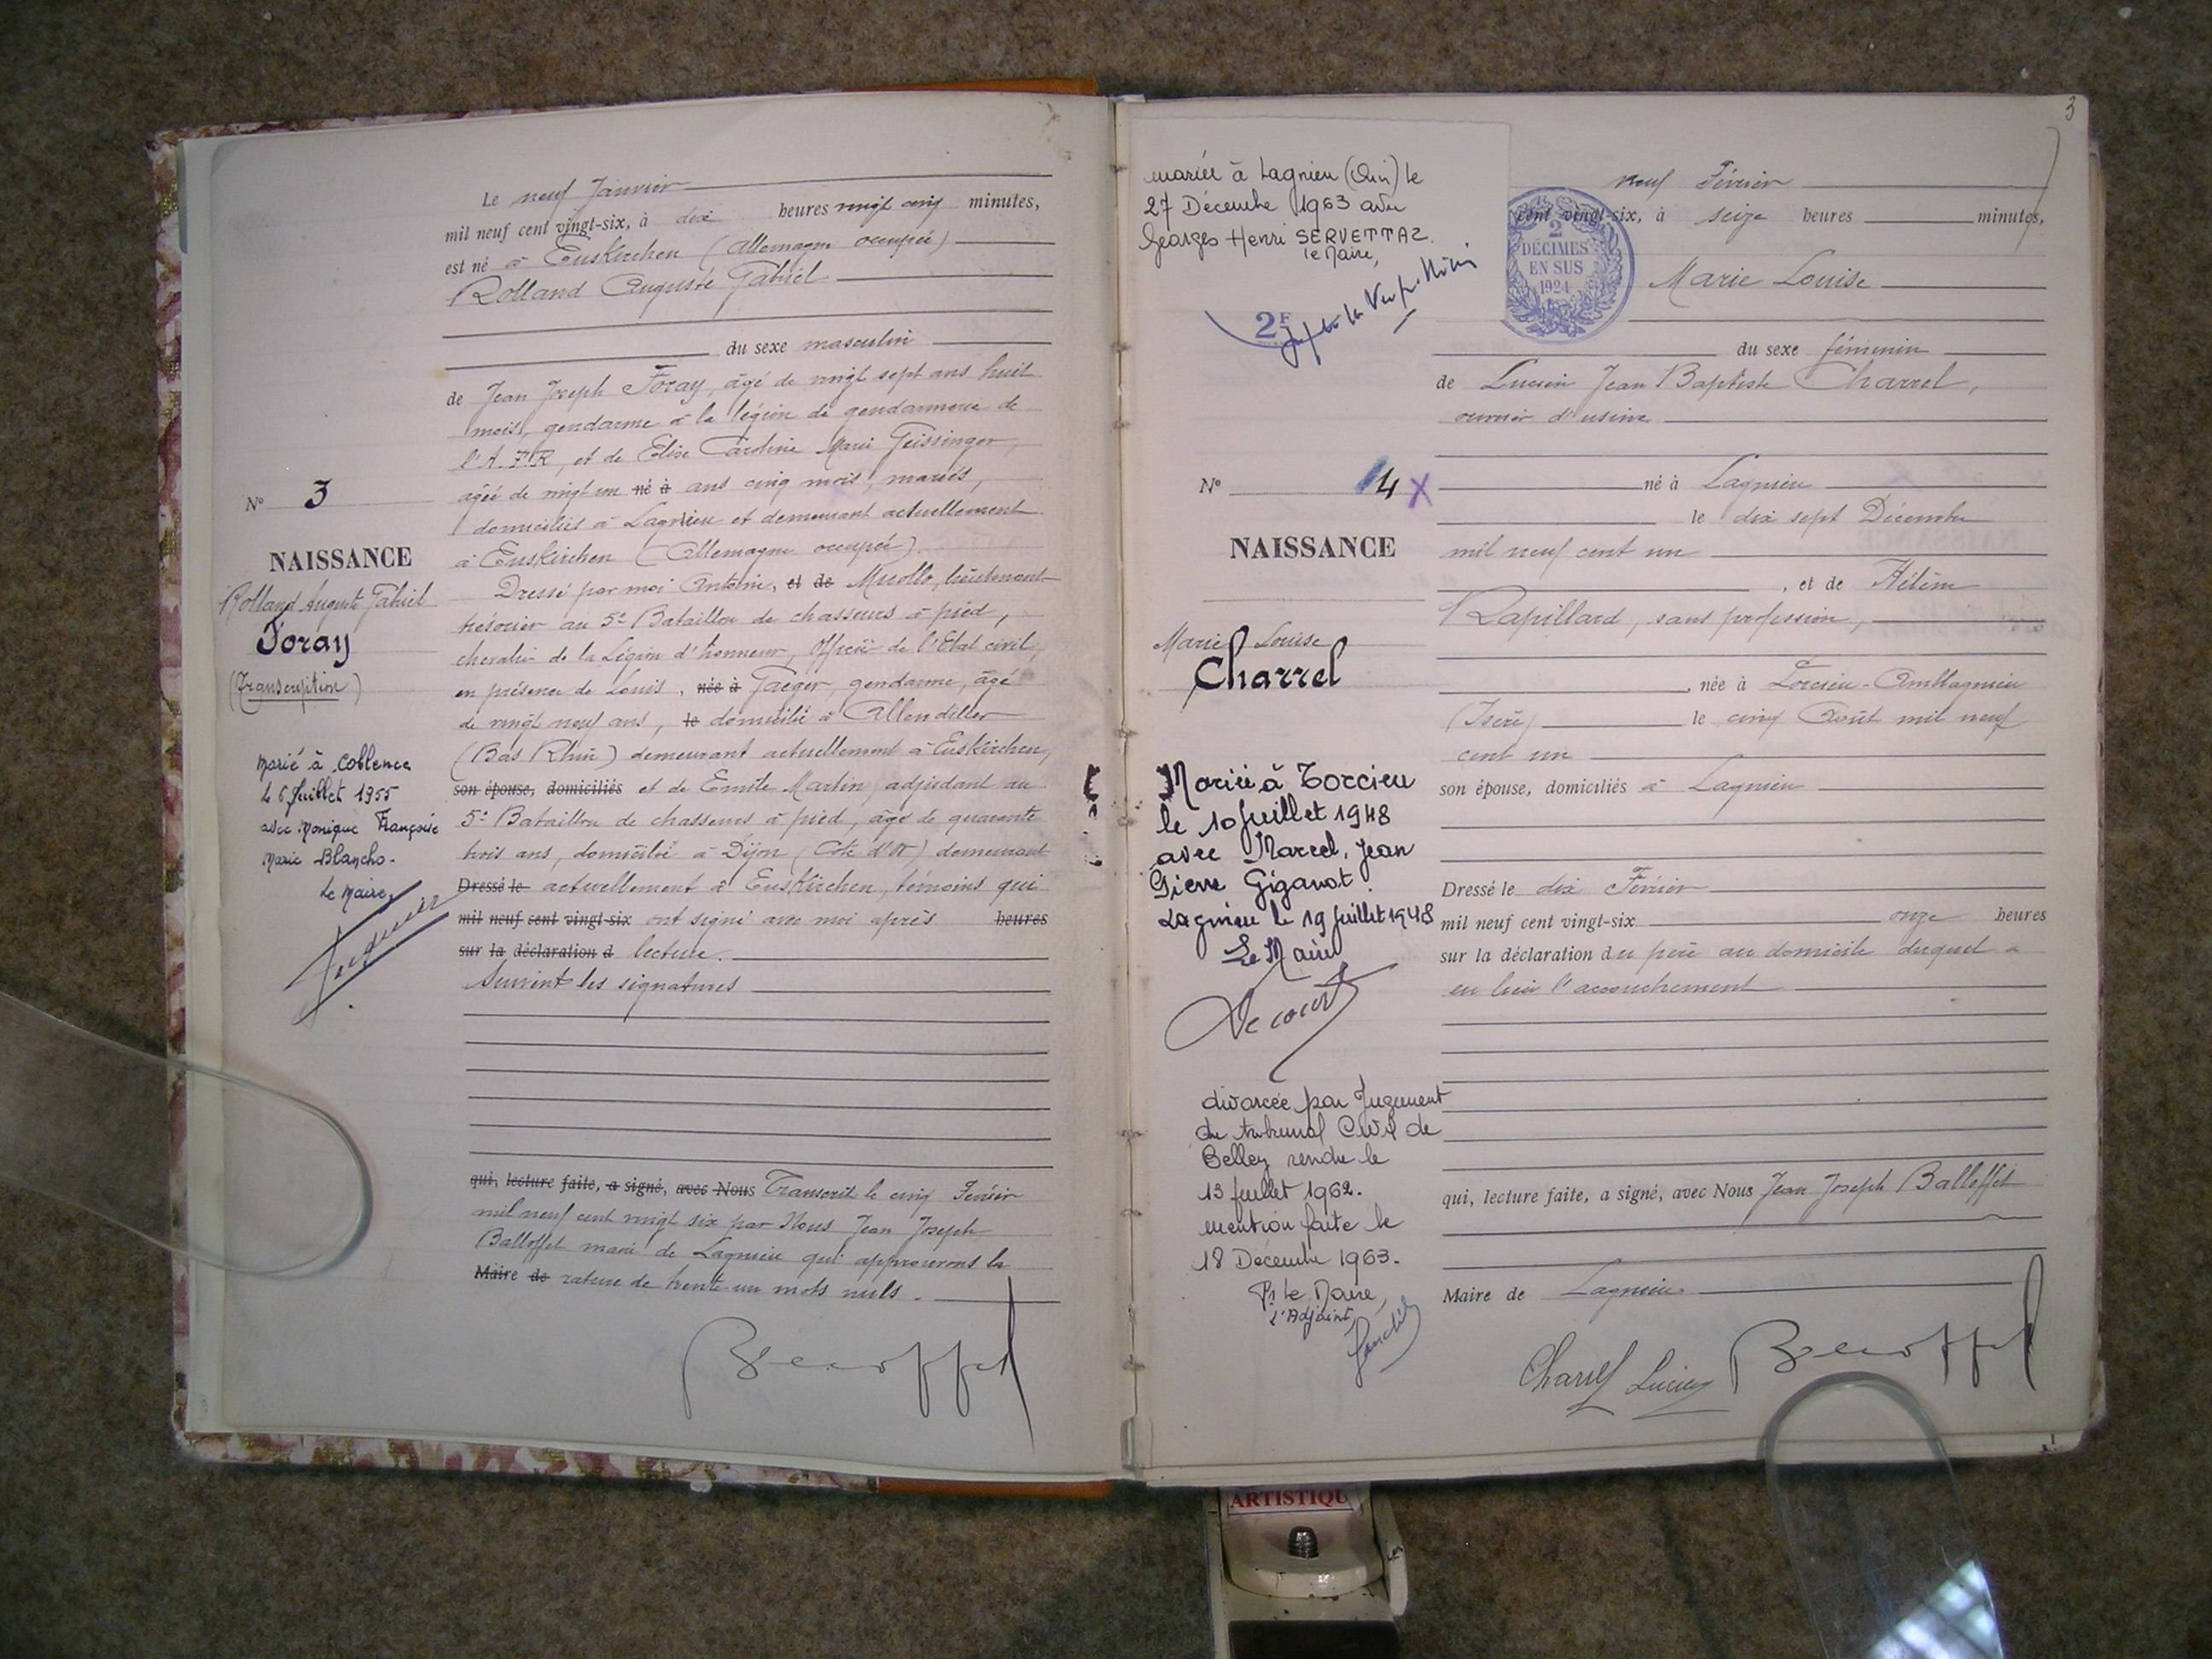 Le neuf Janvier
mil neuf cent vingt-six, à dix heures vingt cinq minutes,
est né à Euskirchen (Allemagne occupée)
Rolland Auguste Gabriel
du sexe masculin
de Jean Joseph Foray, âgé de vingt sept ans huit
mois, gendarme à la légion de gendarmerie de
l'A. F. R, et de Elise Caroline Marie Geissinger,
âgée de vingt un né à ans cinq mois, mariés,
domiciliés à Lagnieu et demeurant actuellement
à Euskirchen (Allemagne occupée).
Dressé par moi Antoine, et de Murollo, lieutenant
trésorier au 5e Bataillon de chasseurs à pied,
chevalier de la Légion d'honneur, Officier de l'Etat civil,
en présence de Louis, née à Jaeger, gendarme, âgé
de vingt neuf ans, le domicilié à
(Bas Rhin) demeurant actuellement à Euskirchen,
son épouse, domiciliés et de Emile Martin, adjudant au
5e Bataillon de chasseurs à pied, âgé de quarante
trois ans, domicilié à Dijon (Côte d'Or) demeurant
Dressé le actuellement à Euskirchen, témoins qui
mil neuf cent vingt-six ont signé avec moi après heures
sur la déclaration d lecture.
Suivent les signatures
qui, lecture faite, a signé, avec Nous Transcrit le cinq Février
mil neuf cent vingt six par Nous Jean Joseph
Balloffet maire de Lagnieu qui approuvons la
Maire de rature de trente un mots nuls.
N° 3
NAISSANCE
Rolland Auguste Gabriel
Foray
(Transcription)
Marié à Coblence
le 6 Juillet 1955
avec Monique Françoise
Marie Blancho-
Le Maire,
3
mariée à Lagnieu (Ain) le
27 Décembre 1963 avec
Georges Henri SERVETTAZ.
le Maire,
2F
2
DÉCIMES
EN SUS
1924
neuf Février
cent vingt-six, à seize heures minutes,
Marie Louise
du sexe féminin
de Lucien Jean Baptiste Charrel,
ouvrier d'usine
né à Lagnieu
le dix sept Décembre
mil neuf cent un
, et de Hélène
Rapillard, sans profession,
, née à
(Isère) le cinq Août mil neuf
cent un
son épouse, domiciliés à Lagnieu
Dressé le dix Février
mil neuf cent vingt-six onze heures
sur la déclaration du père au domicile duquel a
eu lieu l'accouchement
qui, lecture faite, a signé, avec Nous Jean Joseph Balloffet
Maire de Lagnieu
Charrel Lucien
N° 4 X
NAISSANCE
Marie Louise
Charrel
Mariée à Torcieu
le 10 Juillet 1948
avec Marcel, Jean
Pierre Giganot.
Lagnieu le 19 Juillet 1948
Le Maire
divorcée par Jugement
du tribunal Civil de
Belley rendu le
13 juillet 1962.
mention faite le
18 Décembre 1963.
Pr Le Maire,
L'Adjoint,
ARTISTIQU